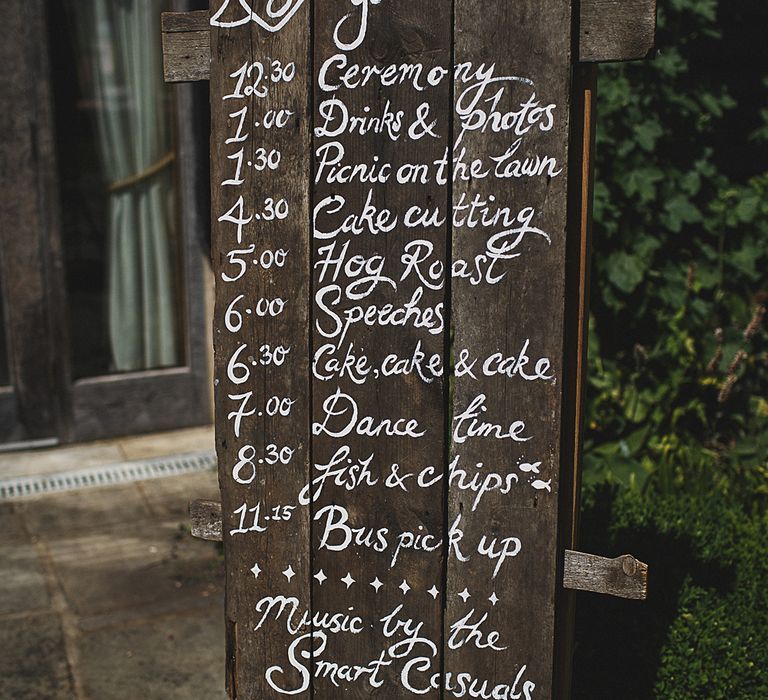 12.30 Ceremony
1.00 Drinks & photos
1.30 Picnic on the lawn
4.30 Cake cutting
5.00 Hog Roast
6.00 Speeches
6.30 Cake, cake & cake
7.00 Dance time
8.30 fish & chips
11.15 Bus pick up
Music by the
Smart Casuals